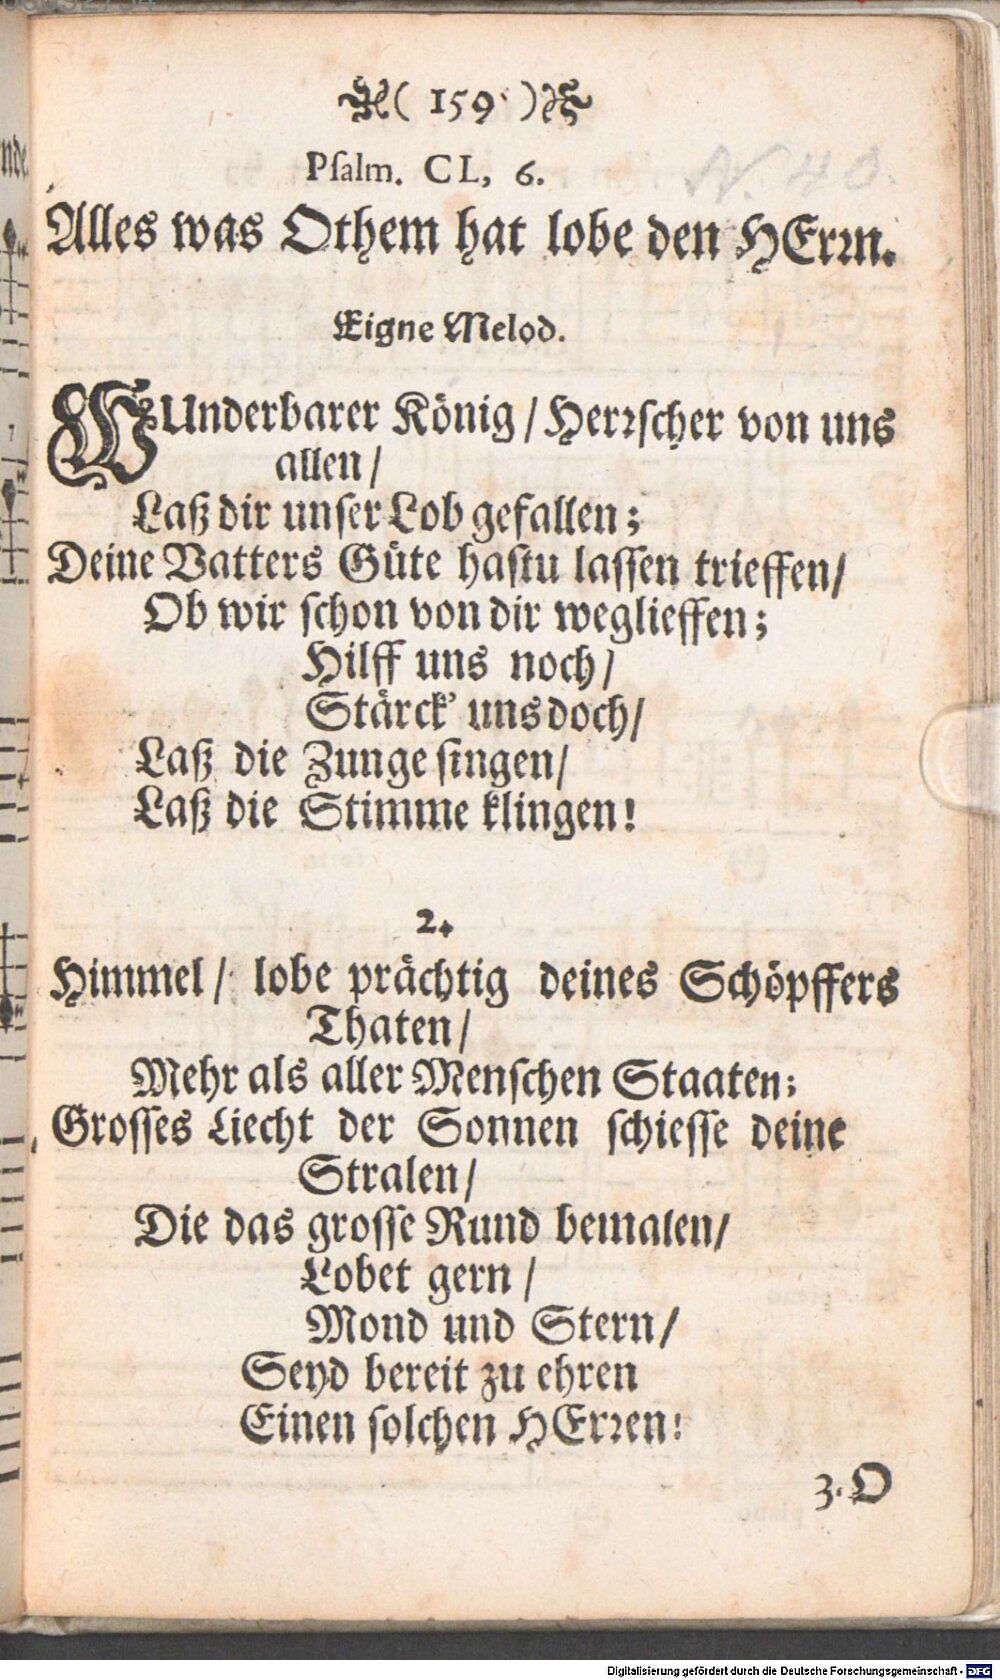 ( 159 )
Psalm. CL, 6.
N. 40.
Alles was Othem hat lobe den HErrn.
Eigne Melod.
WUnderbarer König / Herrscher von uns
allen /
Laß dir unser Lob gefallen;
Deine Vatters Güte hastu lassen trieffen/
Ob wir schon von dir weglieffen;
Hilff uns noch /
Stärck' uns doch/
Laß die Zunge singen/
Laß die Stimme klingen!
2.
Himmel / lobe prächtig deines Schöpffers
Thaten /
Mehr als aller Menschen Staaten;
Grosses Liecht der Sonnen schiesse deine
Stralen /
Die das grosse Rund bemalen/
Lobet gern /
Mond und Stern/
Seyd bereit zu ehren
Einen solchen HErren!
3. O
Digitalisierung gefördert durch die Deutsche Forschungsgemeinschaft - DFG